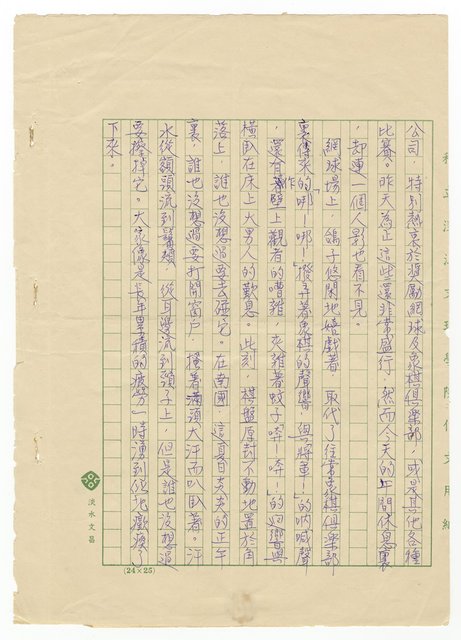 公司，特別熱衷於獎勵網球及象棋俱樂部，或是其他各種
比賽。昨天為止這些還非常盛行，然而今天的午間休息裏
，却連一個人影也看不見。
網球場上，鴿子悠閑地嬉戲著，取代了往常象棋俱樂部
裏傳來的「咿—咿—」撥弄着象棋的聲響，與「將軍—」的吶喊聲
，還有壁上觀者的嘈雜，夾雜著蚊子「嗡—嗡—」的迴響與
橫臥在床上大男人的歎息。此刻，棋盤原封不動地置於角
落上，誰也沒想過要去碰它。在南國，這夏日炎炎的正午
裏，誰也沒想過要打開窗户，搔着滿頭大汗而趴臥着。汗
水從額頭流到鬢頰，從耳邊流到頸子上，但是誰也沒想過
要擦掉它。大家像是長年累積的疲勞一時湧到似地癱瘓了
下來。
淡水文品
(24×25)